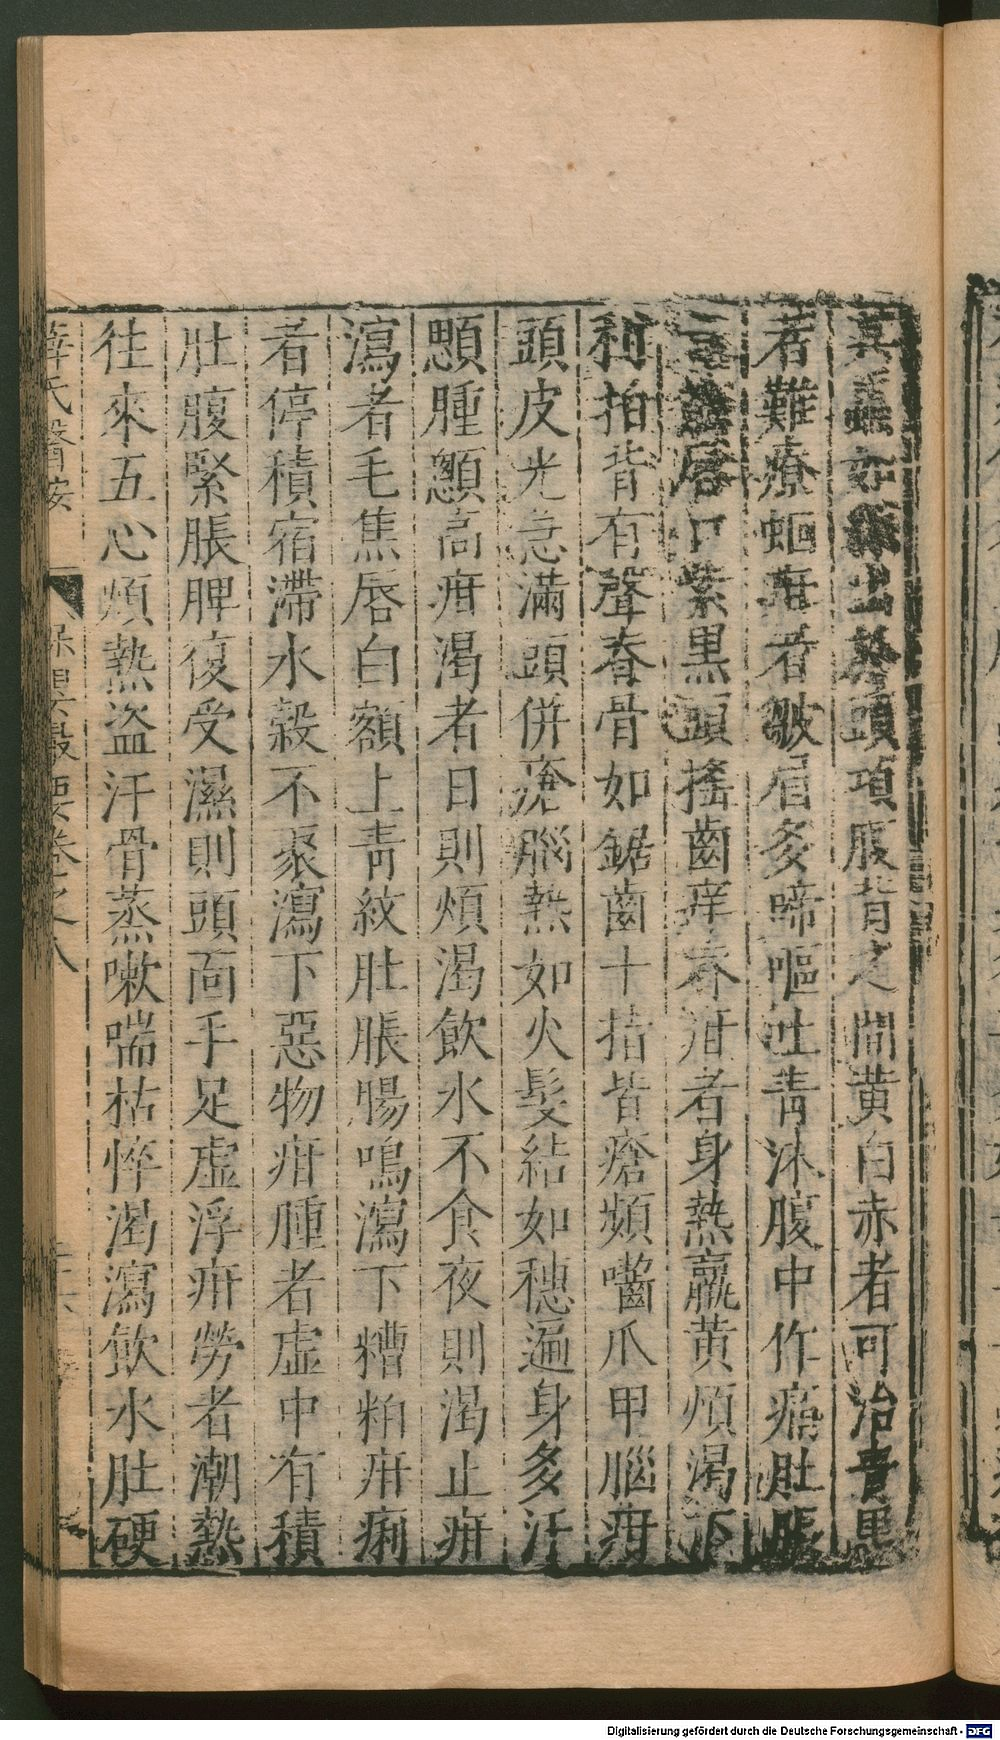 其蟲如絲出於頭項腹背之間黃白赤者可治青黑
者難療蛔疳者皺眉多啼嘔吐青沫腹中作痛肚脹
唇口紫黑頭搖齒痒脊疳者身熱羸黃煩渴下
利拍背有聲脊骨如鋸齒十指皆瘡頻嚙爪甲腦疳
頭皮光急滿頭併瘡腦熱如火髮結如穗遍身多汗
顋腫顖高疳渴者日則煩渴飲水不食夜則渴止疳
瀉者毛焦唇白額上青紋肚脹腸鳴瀉下糟粕疳痢
者停積宿滯水穀不聚瀉下惡物疳腫者虛中有積
肚腹緊脹脾復受濕則頭面手足虛浮疳勞者潮熱
往來五心煩熱盜汗骨蒸嗽喘枯悴渴瀉飲水肚硬
薛氏醫按 保嬰撮要卷之八
Digitalisierung gefördert durch die Deutsche Forschungsgemeinschaft - DFG